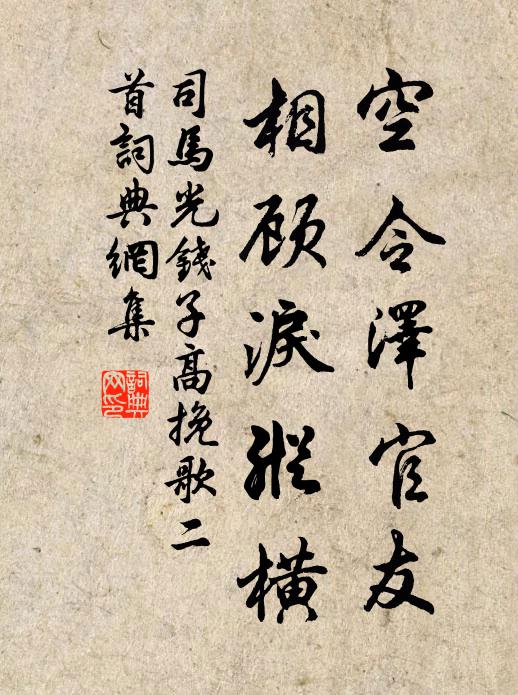 空令澤官友
相顾淚縱橫
司馬光錢子高挽歌二
首詞典網集
詞典
网印